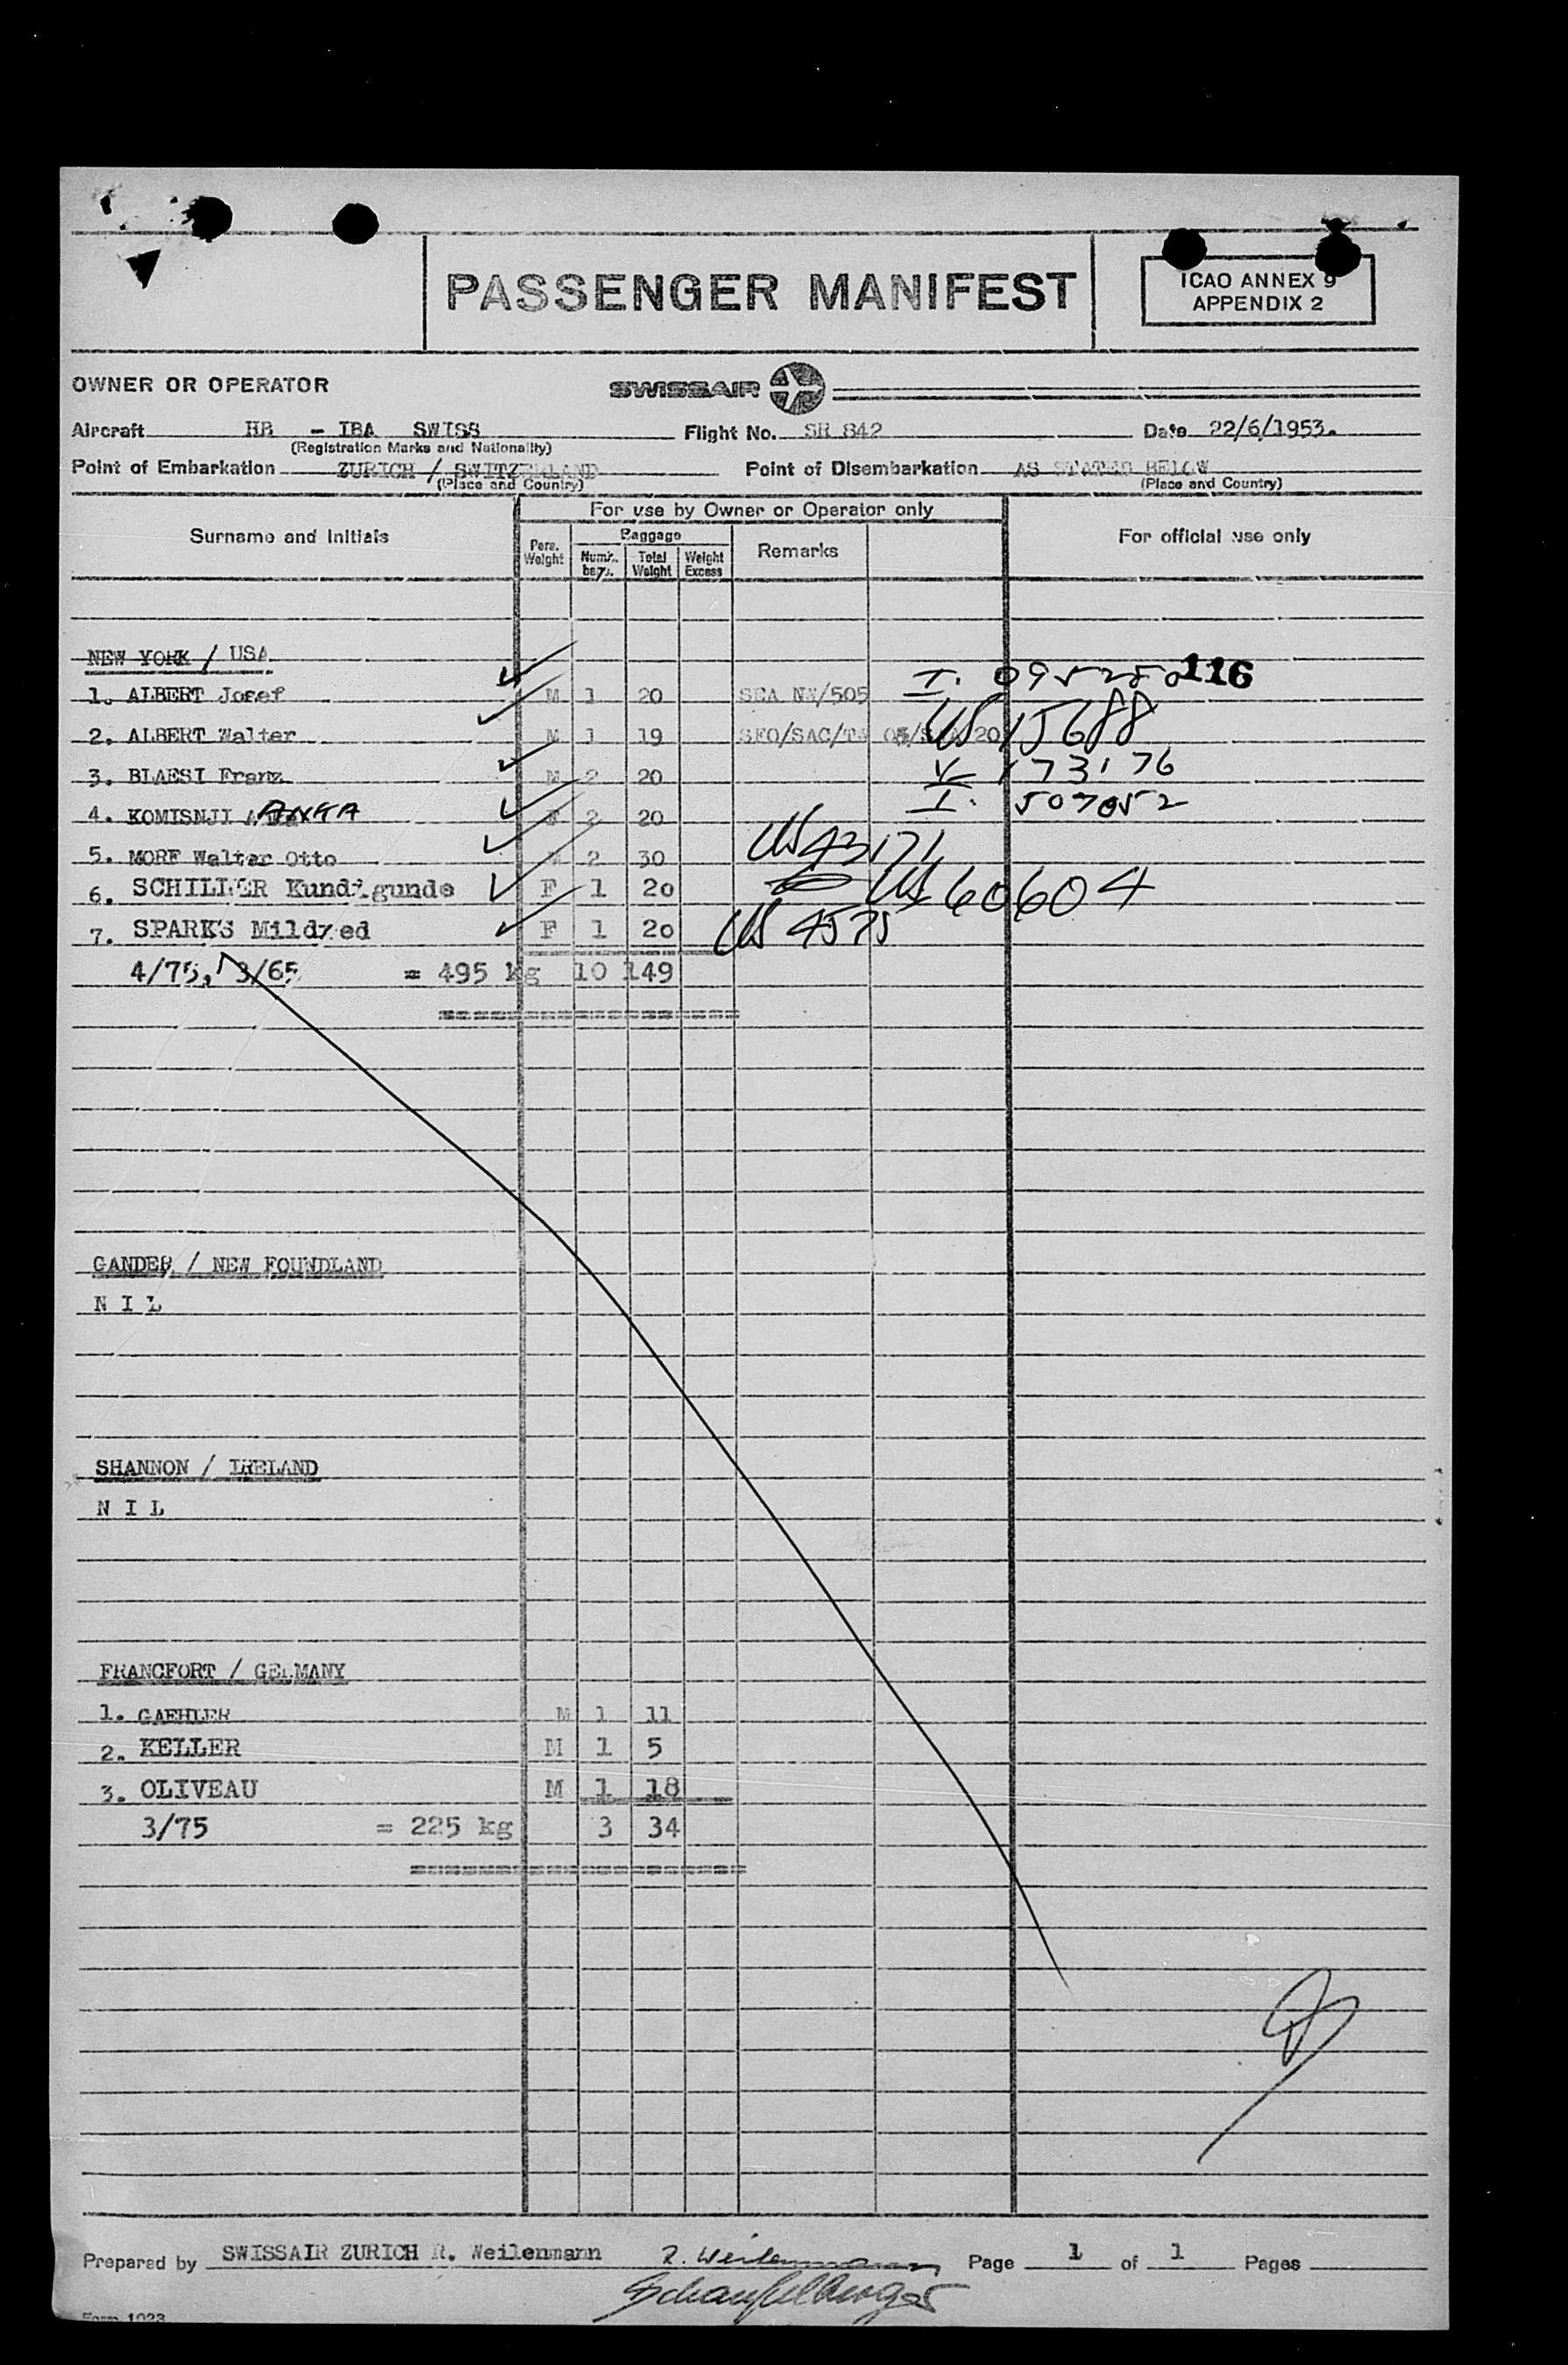 PASSENGER MANIFEST
ICAO ANNEX 9
APPENDIX 2
OWNER OR OPERATOR
SWISSAIR
Aircraft HB - IBA SWISS Flight No. SR 842 Date 22/6/1953.
(Registration Marks and Nationality)
Point of Embarkation ZURICH / SWITZERLAND Point of Disembarkation AS STATED BELOW
(Place and Country) (Place and Country)
For use by Owner or Operator only
Surname and Initials Pers. Weight Baggage Remarks For official use only
Numb. bags. Total Weight Weight Excess
NEW YORK / USA
116
1. ALBERT Josef M 1 20 SEA NW/505 I. 095250
2. ALBERT Walter M 1 19 SFO/SAC/ 20 US 15688
3. BLAESI Franz M 2 20 V 173176
4. KOMISNJI ANKA F 2 20 I. 507052
5. MORF Walter Otto M 2 30 US 43171
6. SCHILLER Kundigunde F 1 20 US 60604
7. SPARKS Mildred F 1 20 US 4575
4/75, 3/65 = 495 kg 10 149
GANDER / NEW FOUNDLAND
N I L
SHANNON / IRELAND
N I L
FRANCFORT / GERMANY
1. GAEHLER M 1 11
2. KELLER M 1 5
3. OLIVEAU M 1 18
3/75 = 225 kg 3 34
Prepared by SWISSAIR ZURICH R. Weilenmann R. Weilenmann Page 1 of 1 Pages
Schaufelberger
Form 1023